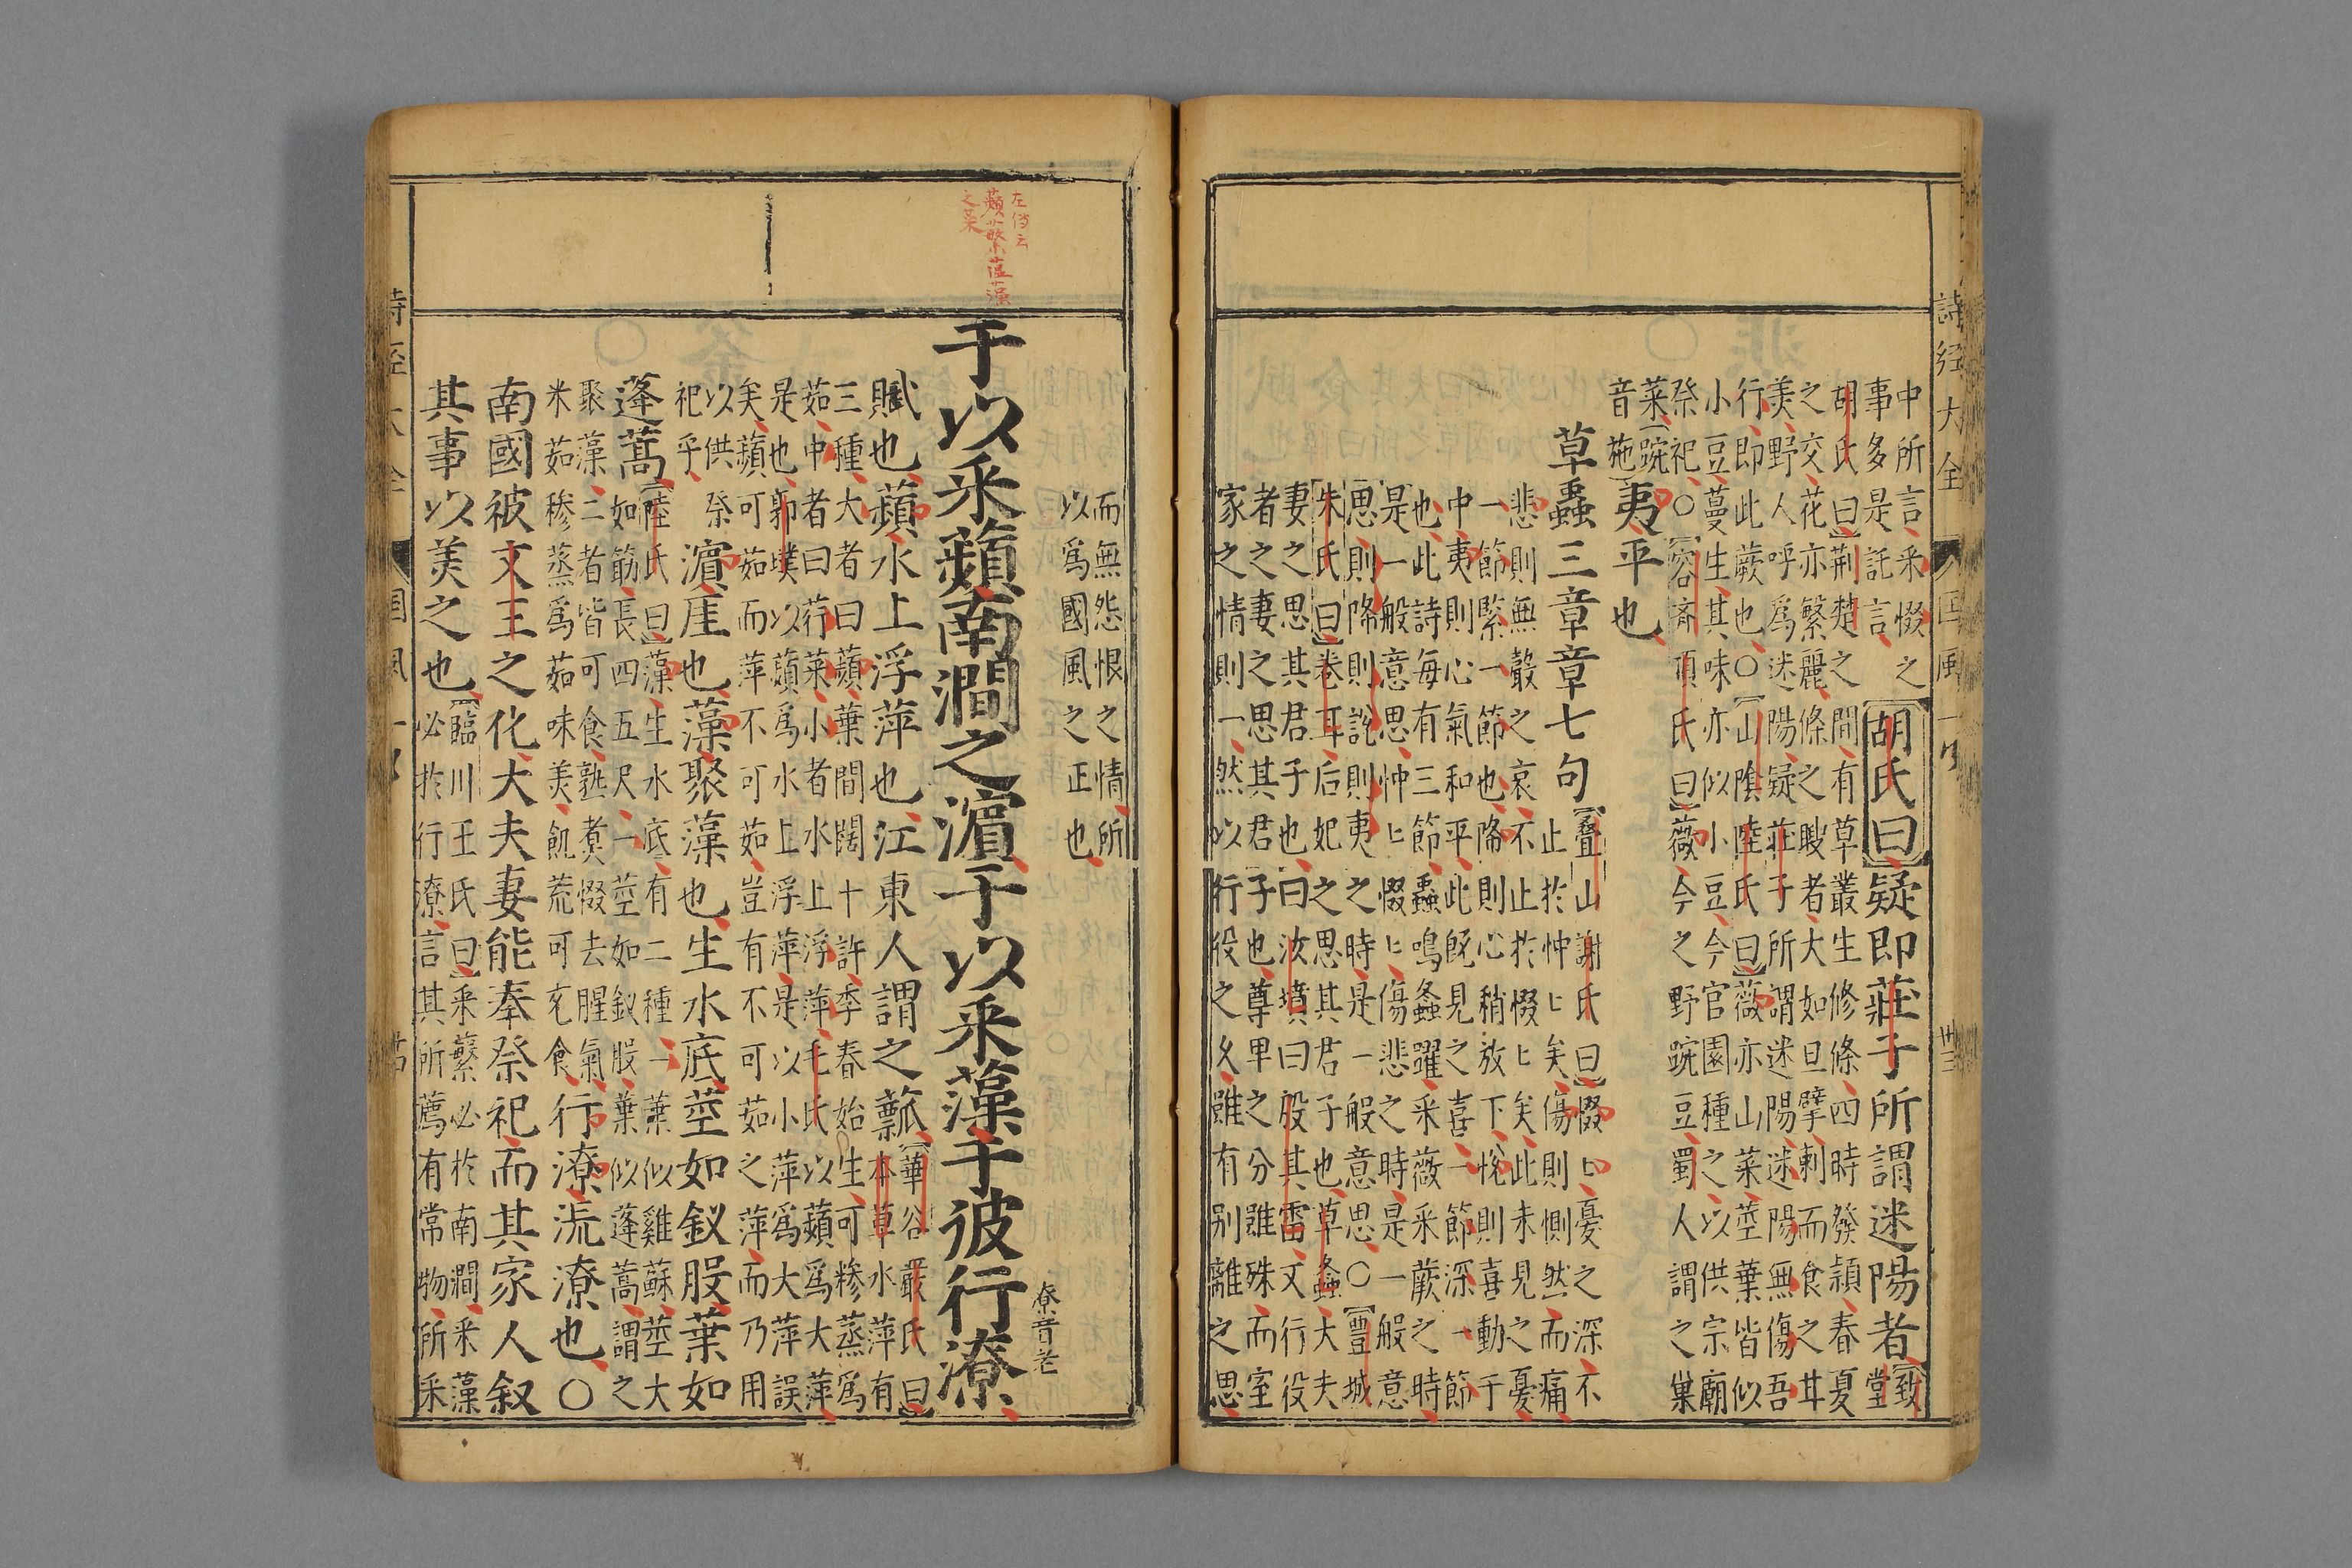 詩經大全
國風一
卅三
中所言采惙之
事多是託言
胡氏曰
疑即莊子所謂迷陽者
致堂
胡氏曰荆楚之間有草叢生修條四時發穎春夏
之交花亦繁麗條之腴者大如巨擘剌而食之甘
美野人呼爲迷陽疑莊子所謂迷陽迷陽無傷吾
行即此蕨也○山陰陸氏曰薇亦山菜莖葉皆似
小豆蔓生其味亦似小豆今官園種之以供宗廟
祭祀○容齋項氏曰薇今之野豌豆蜀人謂之巢
菜豌
音菀
夷平也
草蟲三章章七句
疊山謝氏曰惙惙憂之深不
止於忡忡矣傷則惻然而痛
悲則無聲之哀不止於惙惙矣此未見之憂
一節緊一節也降則心稍放下悅則喜動于
中夷則心氣和平此旣見之喜一節深一節
也此詩每有三節蟲鳴螽躍采薇采蕨之時
是一般意思忡忡惙惙傷悲之時是一般意
思則降則說則夷之時是一般意思○豐城
朱氏曰卷耳后妃之思其君子也草蟲大夫
妻之思其君子也曰汝墳曰殷其雷文行役
者之妻之思其君子也尊卑之分雖殊而室
家之情則一然以行役之久雖有別離之思
而無怨恨之情所
以爲國風之正也
于以采蘋南澗之濱于以采藻于彼行潦
潦音老
左傳云
蘋蘩薀藻
之菜
賦也蘋水上浮萍也江東人謂之薸
華谷嚴氏曰
本草水萍有
三種大者曰蘋葉間闊十許季春始生可糝蒸爲
茹中者曰荇菜小者水上浮萍毛氏以蘋爲大萍
是也郭璞以蘋爲水上浮萍是以小萍爲大萍誤
矣蘋可茹而萍不可茹豈有不可茹之萍而乃用
以供祭
祀乎
濱厓也藻聚藻也生水底莖如釵股葉如
蓬蒿
陸氏曰藻生水底有二種一葉似雞蘇莖大
如筯長四五尺一莖如釵股葉似蓬蒿謂之
聚藻二者皆可食熟煑惙去腥氣
米茹糝蒸爲茹味美飢荒可充食
行潦流潦也○
南國被文王之化大夫妻能奉祭祀而其家人叙
其事以美之也
臨川王氏曰采蘩必於南澗采藻
必於行潦言其所薦有常物所采